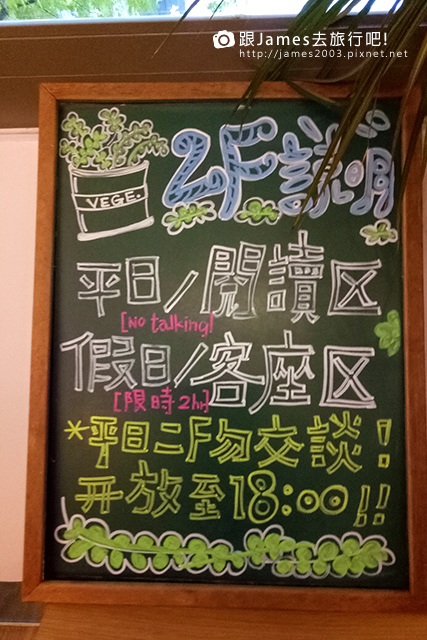 跟James去旅行吧!
http://james2003.pixnet.net
VEGE.
2F說明
平日/閱讀区
[No talking]
假日/客座区
[限時2hr]
*平日二F勿交談!
开放至18:00!!